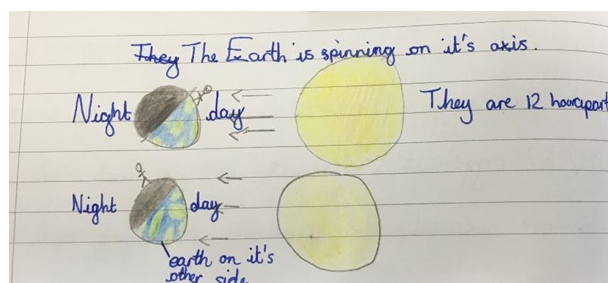 They The Earth is spinning on it's axis.
Night day They are 12 hours apart
Night day
earth on it's
other side